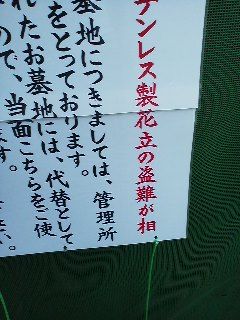 テンレス製花立の盗難が相
墓地につきましては、管理所
をとっております。
れたお墓地には、代替として
ので、当面こちらをご使
ます。